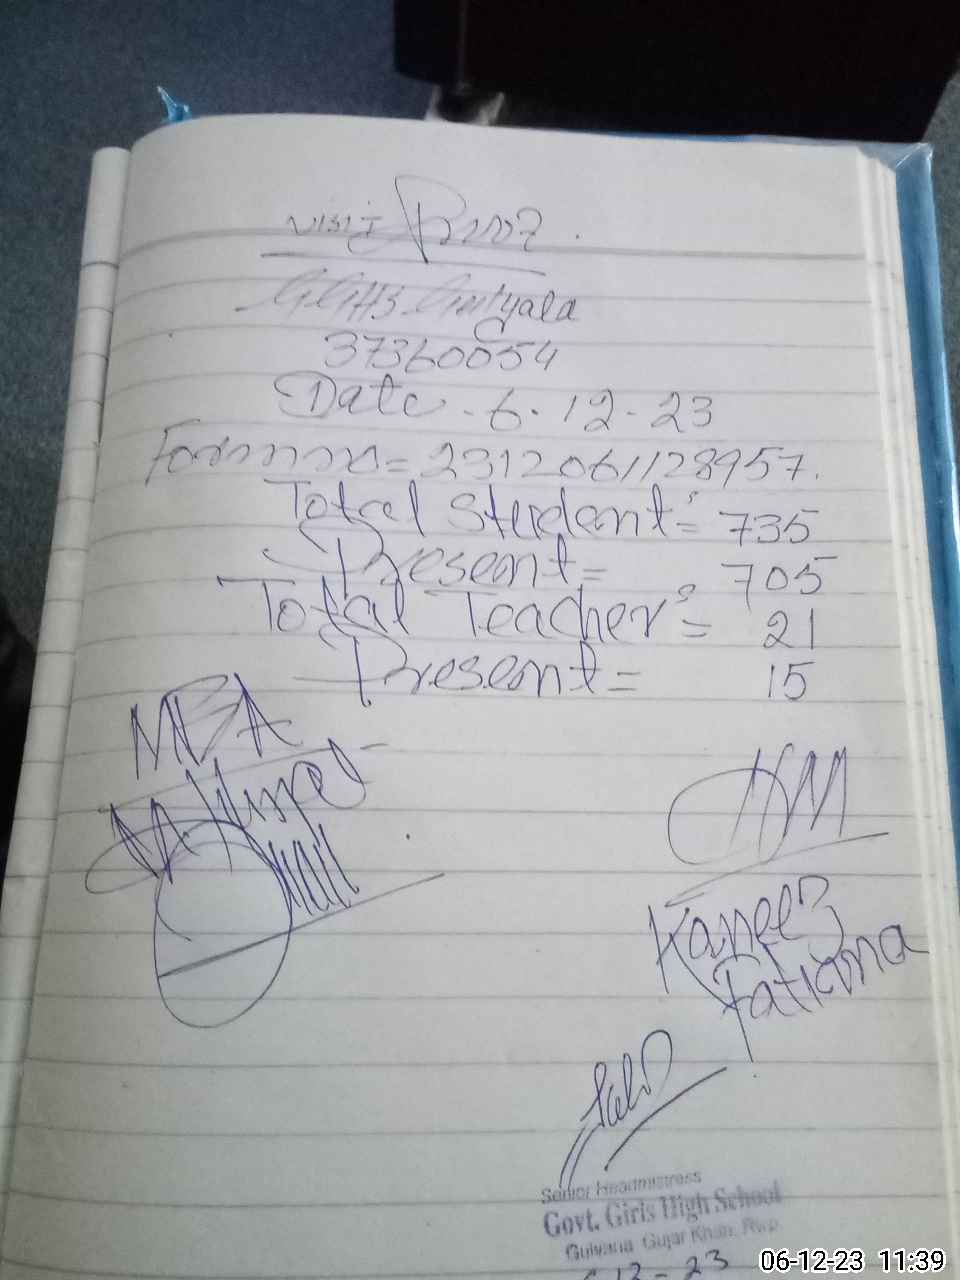 visit Proof
GGHS Gulyala
37360054
Date . 6 . 12 - 23
Form no = 2312061128957.
Total Student = 735
Present = 705
Total Teacher = 21
Present = 15
MEA
HM
Kaneez
Fatima
Senior Headmistress
Govt. Girls High School
Gujar Khan, Rwp
12 - 23
06-12-23 11:39